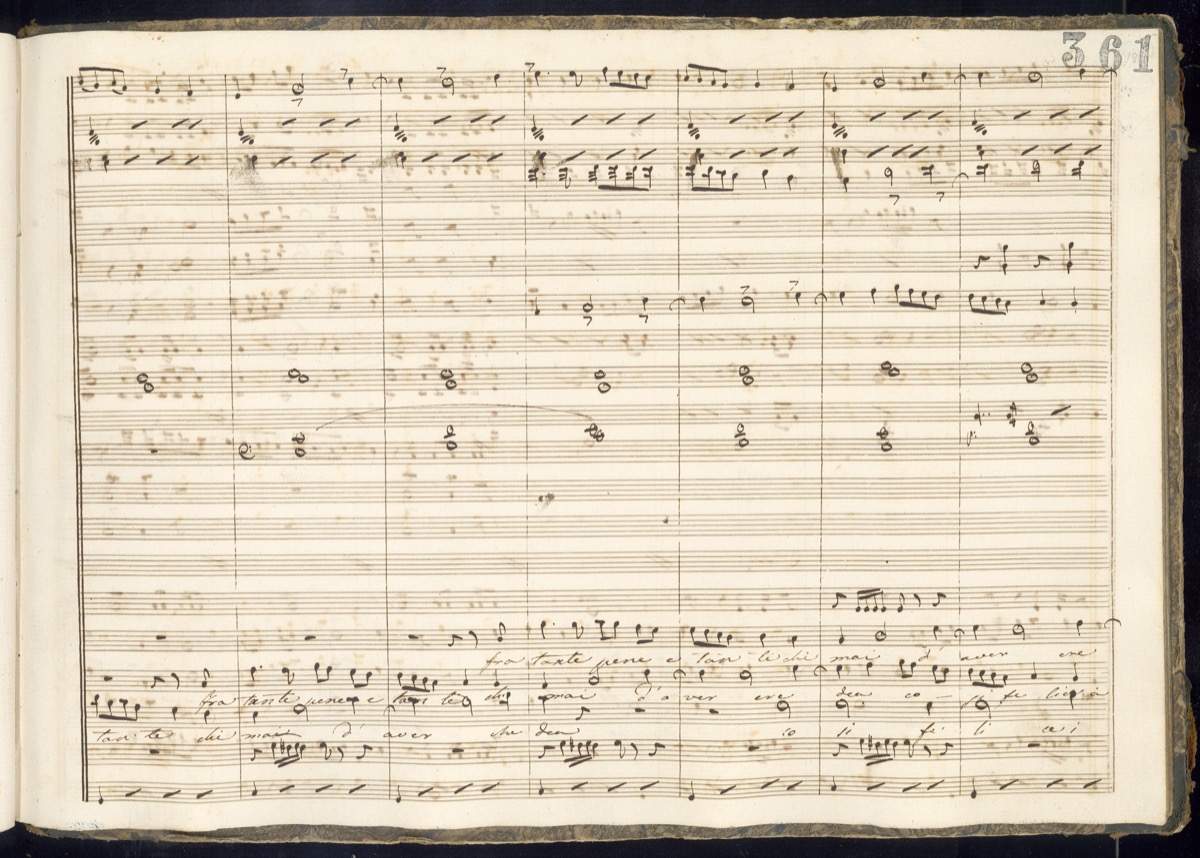 361
fra tante pene e tan ti chi mai d' aver cre
fra tante pene e tan te chi mai d'a ver cre dea co - si fe lici i
tan te chi mai d' aver che dea co si fe li ci i